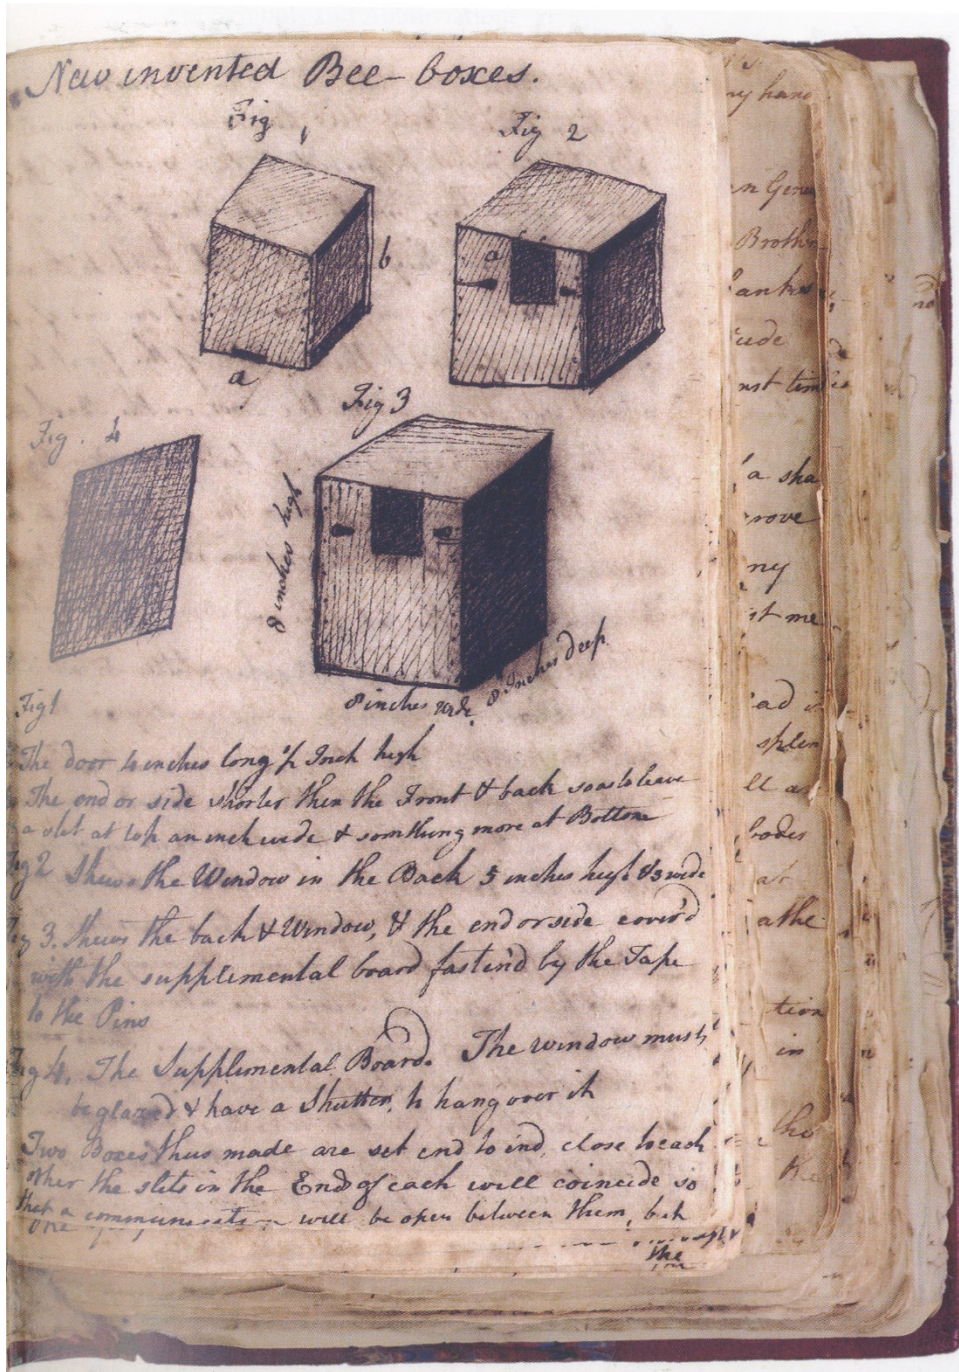 New invented Bee-boxes.
Fig 1
Fig 2
b
a
a
Fig 3
Fig. 4
8 inches high
8 inches wide
8 Inches deep
Fig 1
The door 4 inches long ½ Inch high
The end or side shorter then the Front & back so as to leave
a slit at top an inch wide & somthing more at Bottom
Fig 2 Shews the Window in the Back 5 inches high & 3 wide
Fig 3. Shews the back & Window, & the end or side cover'd
with the supplemental board fasten'd by the Tape
to the Pins
Fig 4. The Supplimental Board. The window must
be glazed & have a Shutter to hang over it
Two Boxes thus made are set end to end close to each
other the slits in the End of each will coincide so
that a communicatn will be open between them, but
one
the
my hand
Gen
Broth
ank
ude
nst
a sha
rove
ny
st me
ad
splen
ll a
at
athe
tion
in
the
the